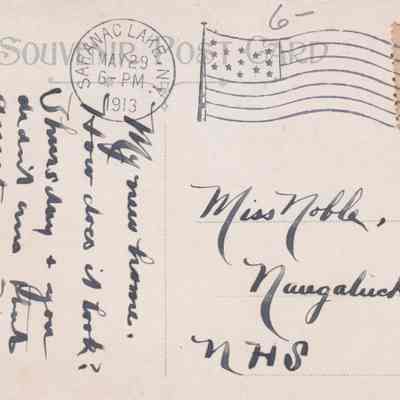 6-
SOUVENIR POST CARD
SARANAC LAKE, N.Y.
MAY 29
6-PM
1913
My new home.
How does it look?
Thursday & you
didn't
Miss Noble,
Naugatuck
NHS